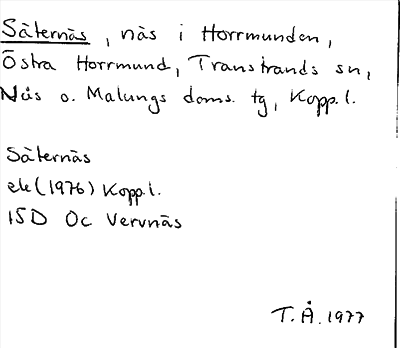 Säternäs, näs i Horrmunden,
Östra Horrmund, Transtrands sn,
Nås o. Malungs doms. tg, Kopp.l.
Säternäs
ek (1976) Kopp.l.
15D Oc Vervnäs
T.Å. 1977